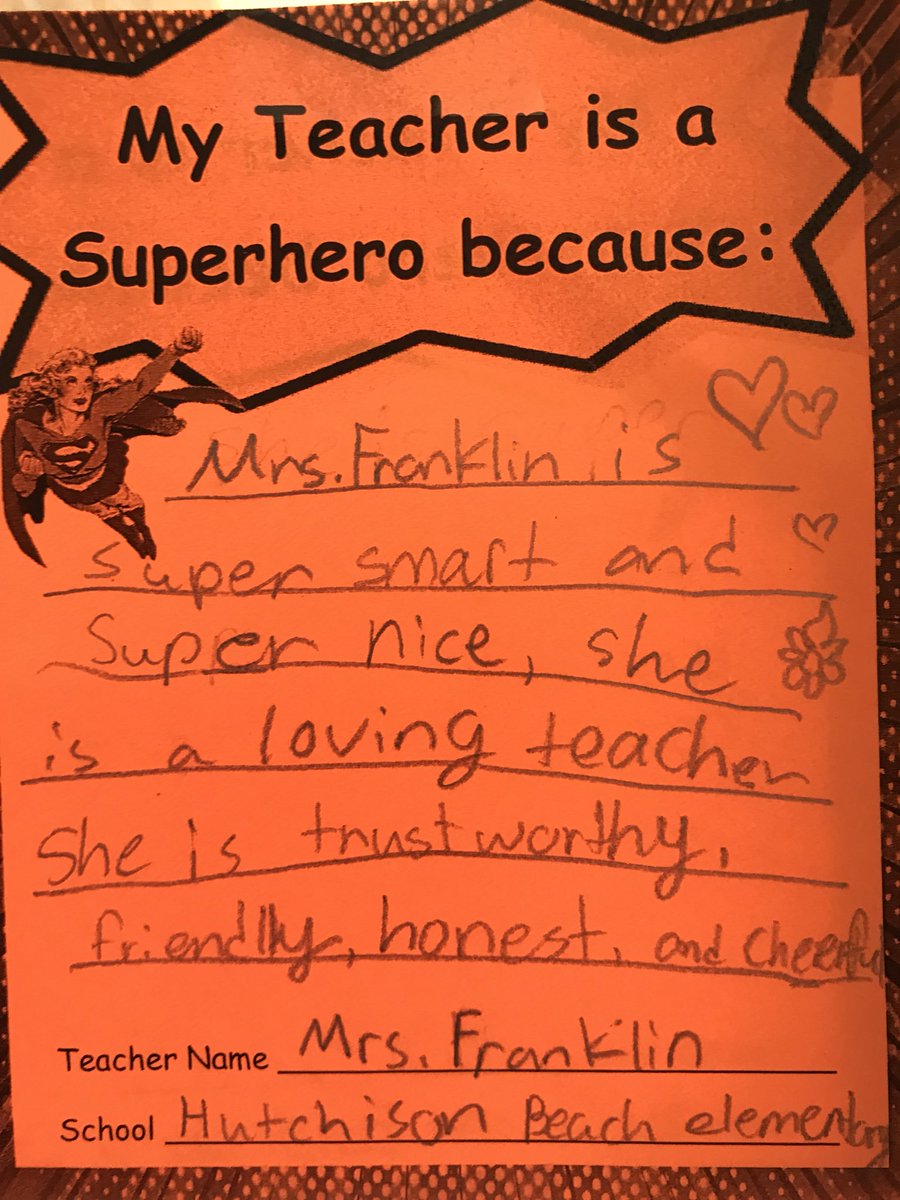 My Teacher is a
Superhero because:
Mrs. Franklin is
super smart and
Super nice, she
is a loving teacher
She is trustworthy,
friendlly, honest, and cheerful
Teacher Name Mrs. Franklin
School Hutchison Beach elementary